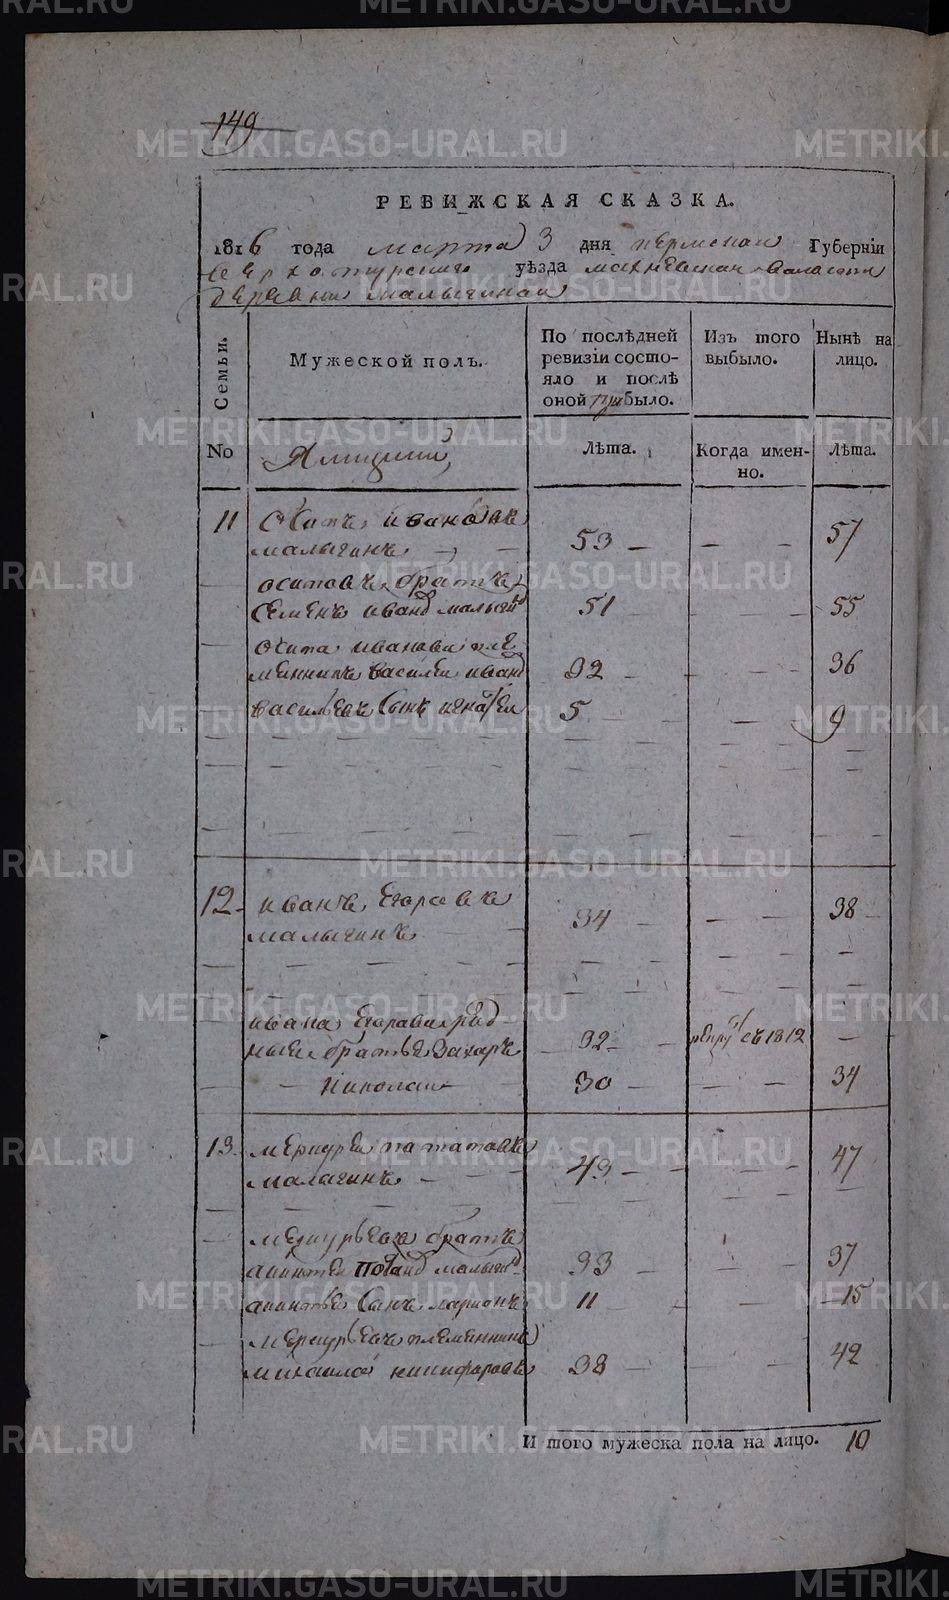 149
РЕВИЖСКАЯ СКАЗКА.
1816 года марта 3 дня пермскаи Губерніи
верхотурскиго уѣзда махневскаи валости
деревни малыгинаи
Семьи.
Мужеской полъ.
По послѣдней ревизіи состо-
яло и послѣ
оной прибыло.
Изъ того
выбыло.
Нынѣ на
лицо.
No
Ямщики
Лѣта.
Когда имен-
но.
Лѣта.
11 Осипъ ивановъ
малыгинъ 53 — — 57
осиповъ братъ
семенъ иванов малыгин 51 55
Осипа иванова пле
менникъ василеи иванов 32 36
васильевъ сынъ игнатеи 5 9
12 иванъ Егоровъ
малыгинъ 34 38
ивана Егорова род
ныеи братья Захаръ 32 рекру съ 1812
Николаи 30 34
13 меркуреи патаповъ
малагинъ 43 47
меркурьевъ братъ
акинтеи потапов малыгин 33 37
акинтьев сынъ ларионъ 11 15
меркурьевъ племенникъ
михаило никифоровъ 38 42
И того мужеска пола на лицо. 10
METRIKI.GASO-URAL.RU